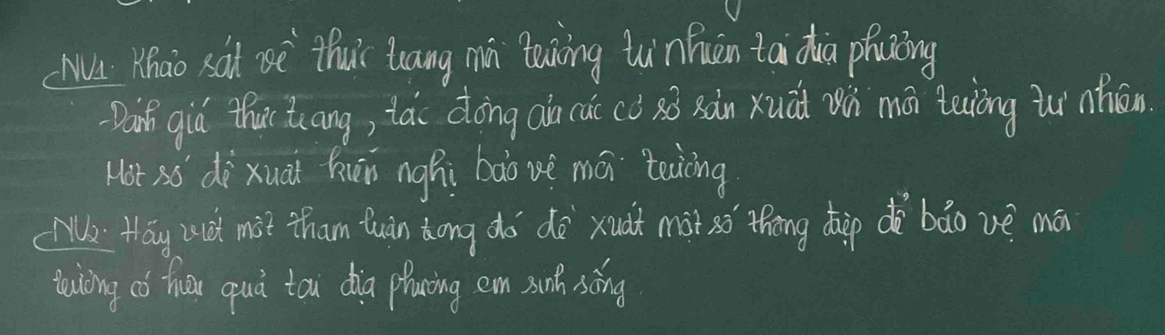 NV1: Khảo sát về thực trạng môi trường tự nhiên tại địa phương
- Đánh giá thực trạng, tác động của các cơ sở sản xuất với môi trường tự nhiên.
Một số đề xuất kiến nghị bảo vệ môi trường.
NV2: Hãy viết một tham luận trong đó đề xuất một số thông điệp để bảo vệ môi
trường có hiệu quả tại địa phương em sinh sống.